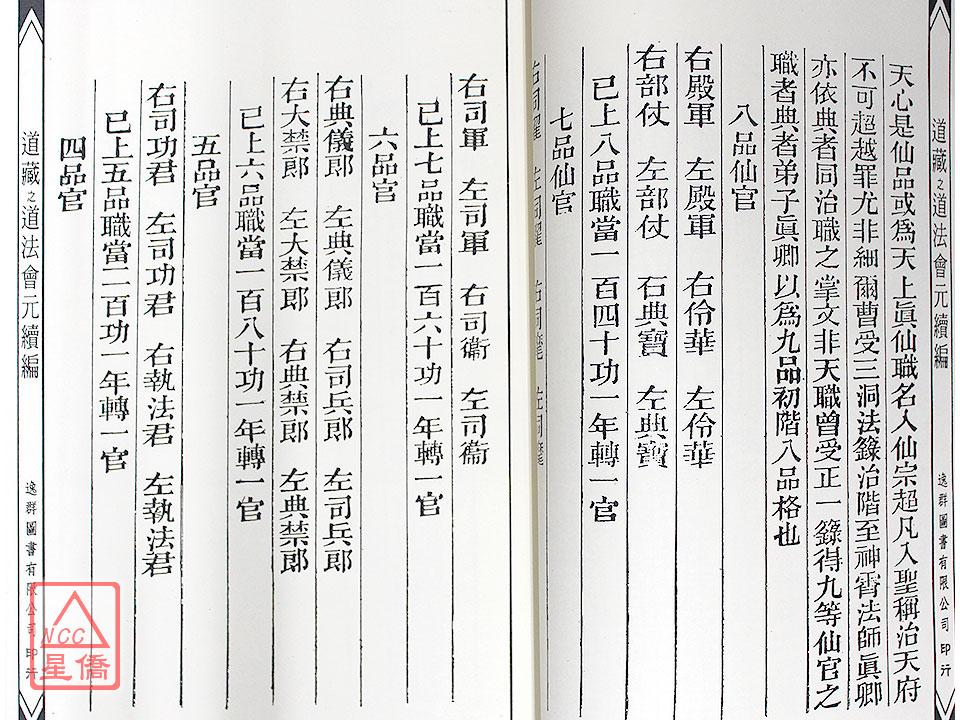 道藏之道法會元續編
逸群圖書有限公司 印行
天心是仙品或爲天上眞仙職名入仙宗超凡入聖稱治天府
不可超越罪尤非細爾曹受三洞法籙治階至神霄法師眞卿
亦依典者同治職之掌文非天職曾受正一籙得九等仙官之
職者典者弟子眞卿以爲九品初階八品格也
八品仙官
右殿軍 左殿軍 右伶華 左伶華
右部仗 左部仗 右典寶 左典寶
已上八品職當一百四十功一年轉一官
七品仙官
右司軍 左司軍 右司衞 左司衞
已上七品職當一百六十功一年轉一官
六品官
右典儀郎 左典儀郎 右司兵郎 左司兵郎
右大禁郎 左大禁郎 右典禁郎 左典禁郎
已上六品職當一百八十功一年轉一官
五品官
右司功君 左司功君 右執法君 左執法君
已上五品職當二百功一年轉一官
四品官
道藏之道法會元續編
逸群圖書有限公司 印行
NCC
星僑